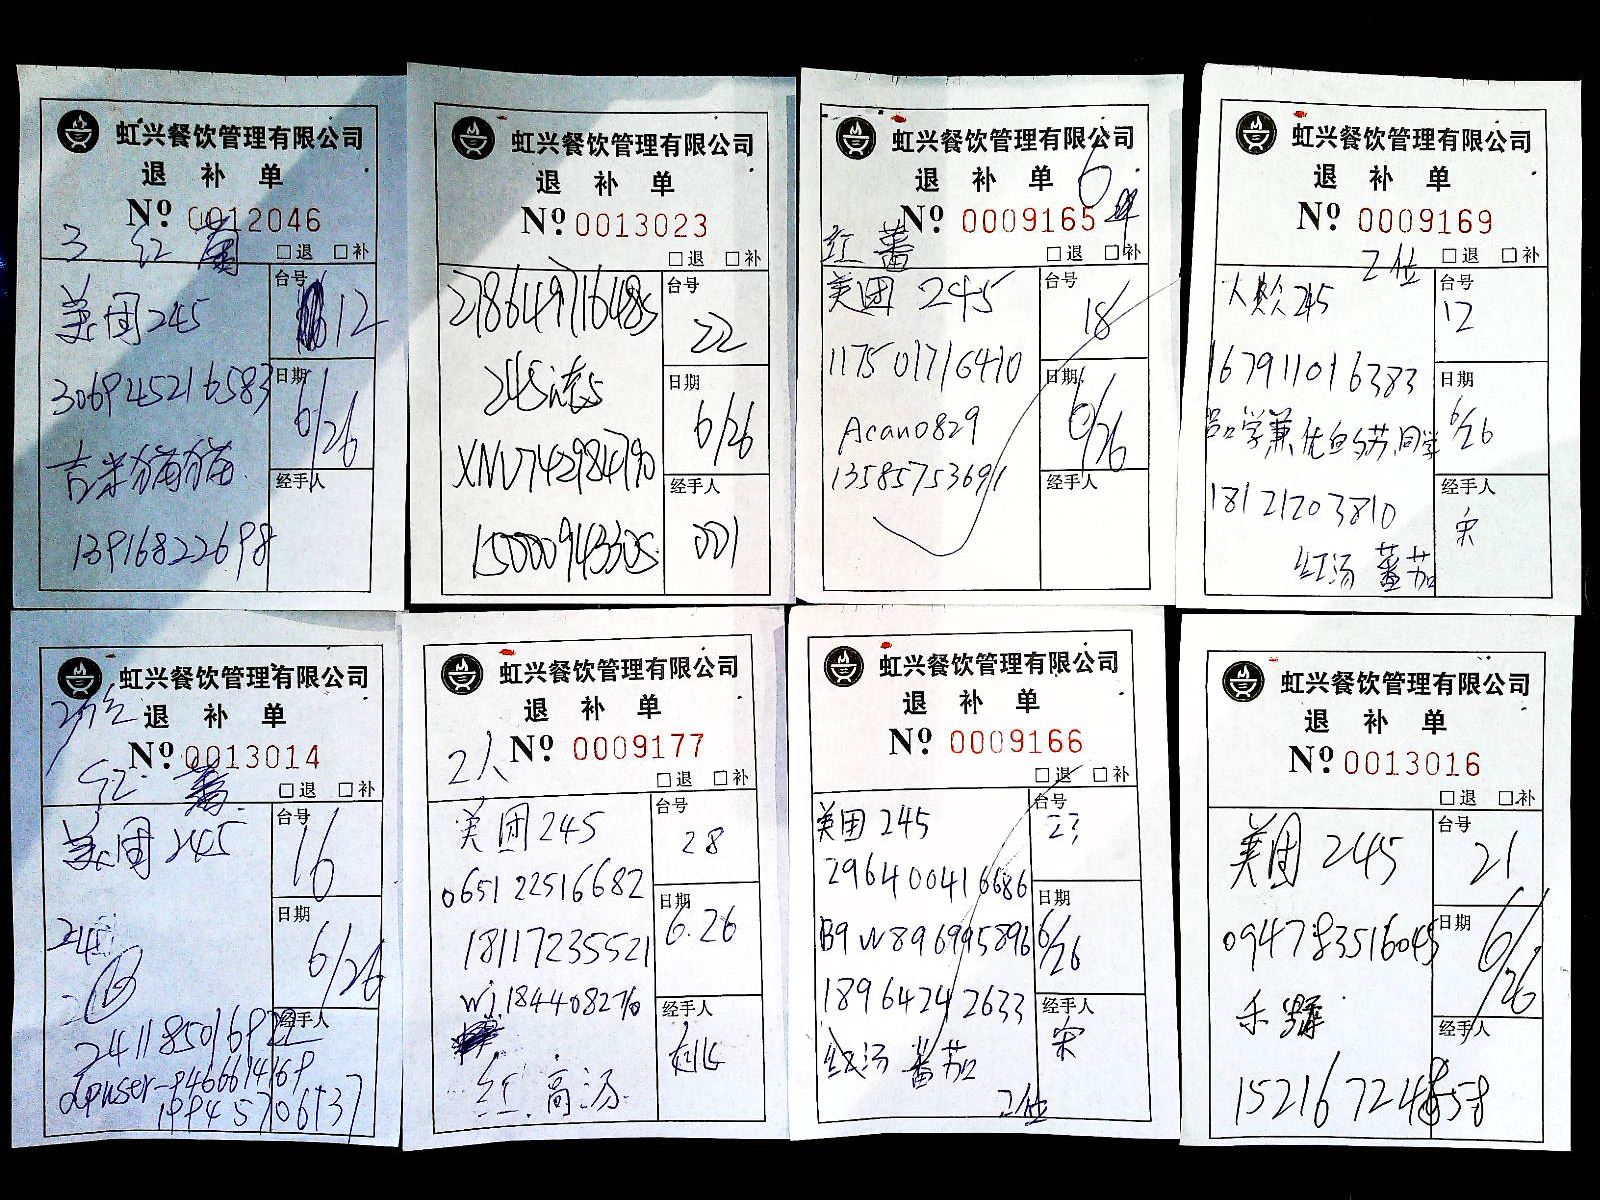 虹兴餐饮管理有限公司
退 补 单
Nº 0012046
3 红 蕃
□退 □补
美团245
台号 12
3069452216583
日期 6/26
吉米猫猫
经手人
13916822698
虹兴餐饮管理有限公司
退 补 单
Nº 0013023
□退 □补
2786497716485
台号 22
245
日期 6/26
XNV742984790
经手人 001
15000943305
虹兴餐饮管理有限公司
退 补 单
6
Nº 0009165
红 蕃
□退 □补
美团 245
台号 18
117501716410
日期 6/26
Acano829
13585753691
经手人
虹兴餐饮管理有限公司
退 补 单
Nº 0009169
□退 □补
2位
大众245
台号 12
167911016383
日期 6/26
18121203810
经手人 宋
红汤 蕃茄
虹兴餐饮管理有限公司
退 补 单
Nº 0013014
红 蕃
□退 □补
美团245
台号 16
245
日期 6/26
经手人
dpuser-9466614169
19945706537
虹兴餐饮管理有限公司
退 补 单
2人
Nº 0009177
□退 □补
美团245
台号 28
065122516682
日期 6.26
18117235521
wj.184408270
经手人
红.高汤
虹兴餐饮管理有限公司
退 补 单
Nº 0009166
□退 □补
美团 245
台号
296400416686
日期 6/26
B9W896995896
18964242633
经手人 宋
红汤 蕃茄
2位
虹兴餐饮管理有限公司
退 补 单
Nº 0013016
□退 □补
美团 245
台号 21
094783516045
日期 6/26
经手人